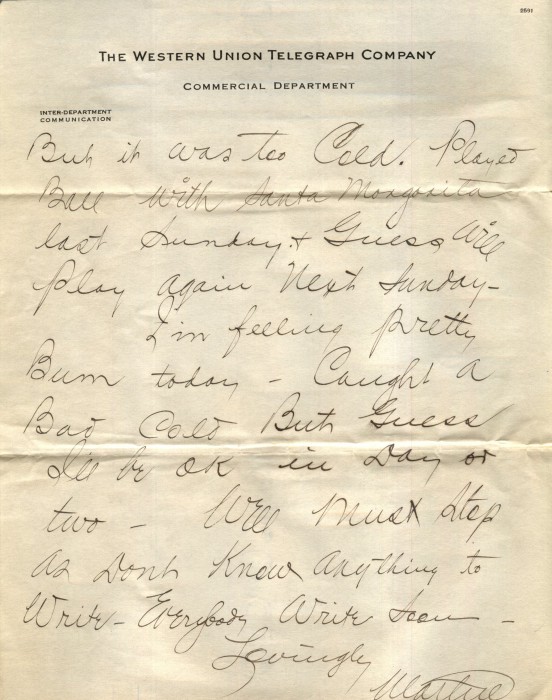 2591
THE WESTERN UNION TELEGRAPH COMPANY
COMMERCIAL DEPARTMENT
INTER-DEPARTMENT
COMMUNICATION
But it was too Cold. Played
Ball with Santa Margarita
last Sunday & Guess Will
Play again Next Sunday-
I'm feeling pretty
Bum today - Caught a
Bad Cold But Guess
I'll be OK in Day or
two - Well Must Stop
as Dont Know Anything to
Write - Everybody Write soon -
Lovingly